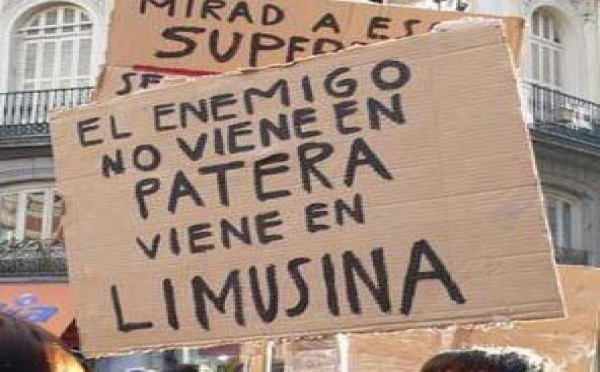 MIRAD A
SUPER
SE
EL ENEMIGO
NO VIENE EN
PATERA
VIENE EN
LIMUSINA